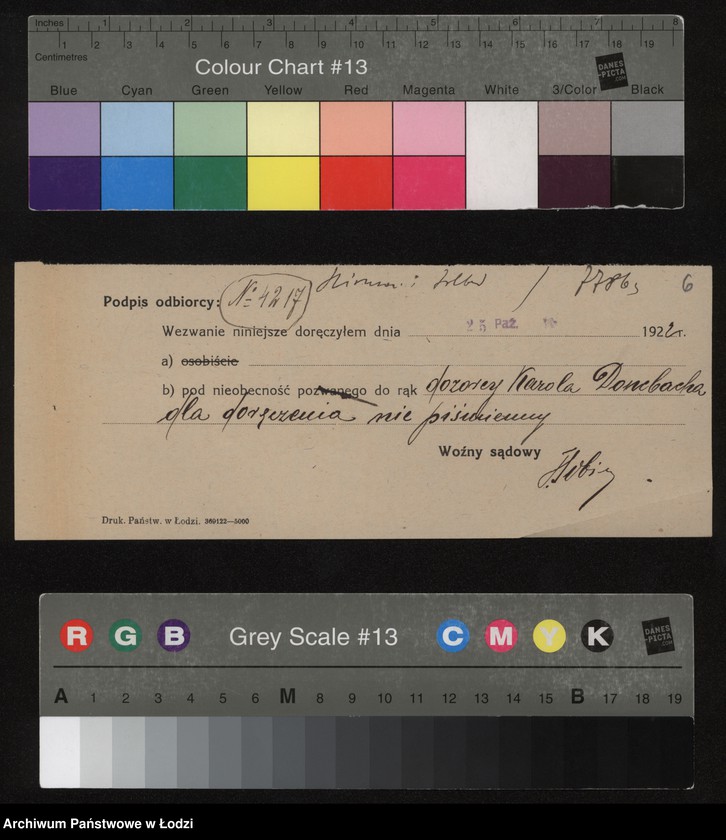 Inches 1 2 3 4 5 6 7 8
1 2 3 4 5 6 7 8 9 10 11 12 13 14 15 16 17 18 19
Centimetres
Colour Chart #13
DANES
-PICTA
.COM
Blue Cyan Green Yellow Red Magenta White 3/Color Black
7786 6
Podpis odbiorcy: № 4217
Wezwanie niniejsze doręczyłem dnia 25 Paź. 1922 r.
a) osobiście
b) pod nieobecność pozwanego do rąk dozorcy Karola Dombacha
dla doręczenia nie piśmienny
Woźny sądowy
Druk. Państw. w Łodzi. 369122—5000
R G B Grey Scale #13 C M Y K
DANES
-PICTA
.COM
A 1 2 3 4 5 6 M 8 9 10 11 12 13 14 15 B 17 18 19
Archiwum Państwowe w Łodzi